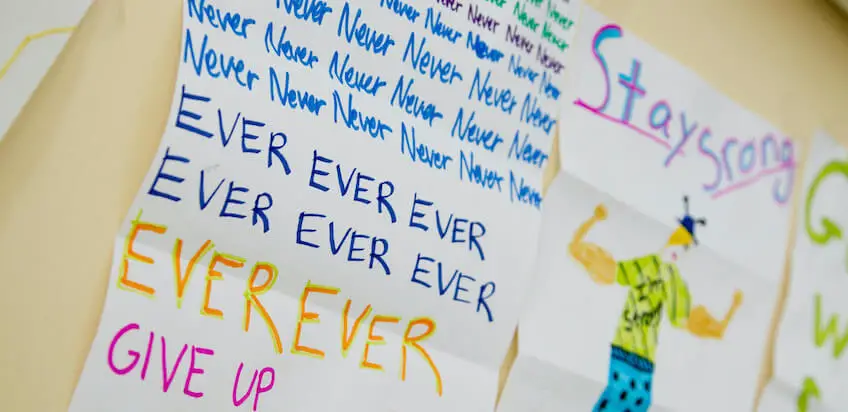 Never Never
Never Never Never Never
Never Never Never Never Never
Never Never Never Never Never
Never Never Never Never Never Never
Never Never Never Never Never Never
EVER EVER EVER
EVER EVER EVER
EVER EVER
GIVE UP
Stay Srong
I'm